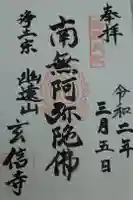 奉拝
令和二年
三月五日
南無阿弥陀佛
浄土宗
幽遠山
玄信寺